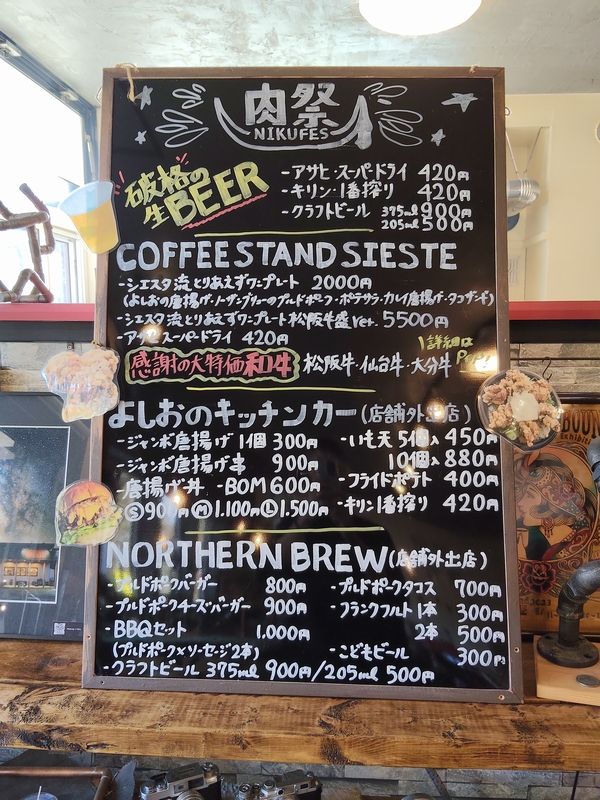 肉祭
NIKUFES
破格の
生BEER
-アサヒ・スーパードライ 420円
-キリン・1番搾り 420円
-クラフトビール 375ml 900円
205ml 500円
COFFEE STAND SIESTE
-シエスタ流とりあえずワンプレート 2000円
(よしおの唐揚げ・ノーザンブリューのプルドポーク・ポテサラ・カレイ唐揚げ・タコザンギ)
-シエスタ流とりあえずワンプレート松阪牛盛ver. 5500円
-アサヒスーパードライ 420円
詳細は
感謝の大特価和牛 松阪牛・仙台牛・大分牛
よしおのキッチンカー(店舗外出店)
-ジャンボ唐揚げ 1個 300円
-いも天 5個入 450円
-ジャンボ唐揚げ串 900円
10個入 880円
-唐揚げ丼 -BOM 600円
-フライドポテト 400円
Ⓢ900円 Ⓜ1.100円 Ⓛ1.500円
-キリン1番搾り 420円
NORTHERN BREW(店舗外出店)
-プルドポークバーガー 800円
-プルドポークタコス 700円
-プルドポークチーズバーガー 900円
-フランクフルト 1本 300円
-BBQセット 1.000円
2本 500円
(プルドポーク×ソーセージ2本)
-こどもビール 300円
-クラフトビール 375ml 900円/205ml 500円